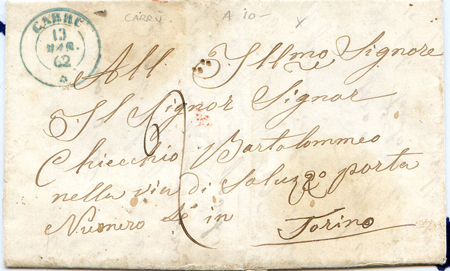 CARRÙ
13
MAR
62
CARRÙ
A 10 -
X
All Illmo Signore
Il Signor Signor
Chiecchio Bartolommeo
nella via di Saluzzo porta
Numero 2 in
Torino